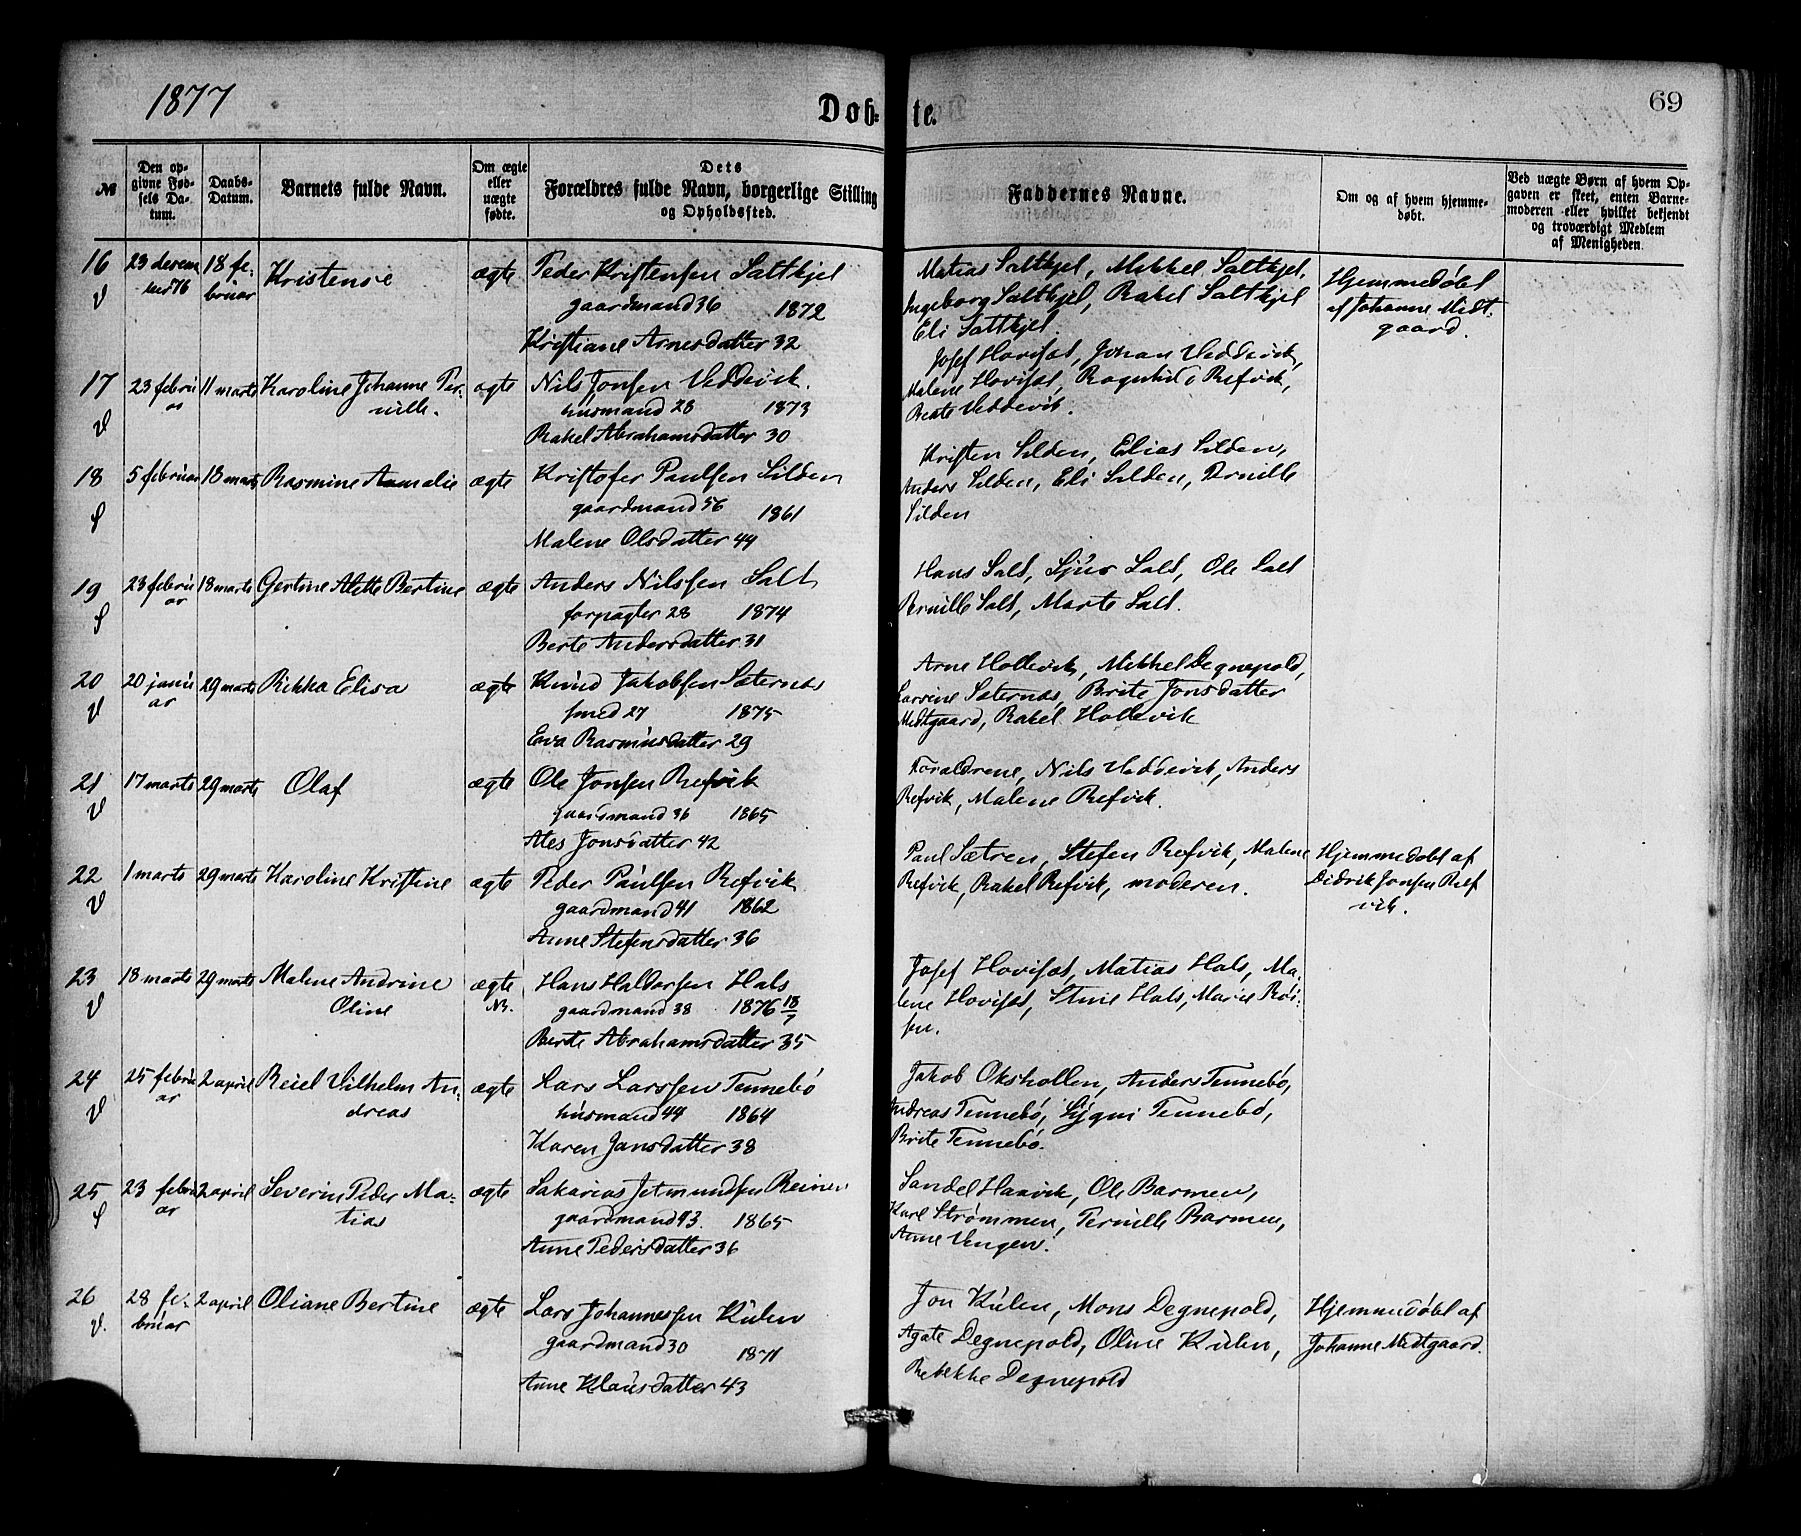 1877
Døb-
te.
69
№
Den op-
givne Fød-
sels Da-
tum.
Daabs-
Datum.
Barnets fulde Navn.
Om ægte
eller
uægte
fødte.
Dets
Forældres fulde Navn, borgerlige Stilling
og Opholdssted.
Faddernes Navne.
Om og af hvem hjemme-
døbt.
Ved uægte Børn af hvem Op-
gaven er skeet, enten Barne-
moderen eller hvilket bekjendt
og troværdigt Medlem
af Menigheden.
16
V
23 desem
ber 76
18 fe-
bruar
Kristense
ægte
Peder Kristensen Saltkjel
gaardmand 36 1872
Kristiane Arnesdatter 32
Matias Saltkjel, Mikkel Saltkjel,
Ingeborg Saltkjel, Rakel Saltkjel
Eli Saltkjel.
Hjemmedøbt
af Johanne Midt-
gaard
17
V
23 febru
ar
11 marts
Karoline Johanne Per-
nille.
ægte
Nils Jonsen Veddevik.
husmand 28 1873
Rakel Abrahamsdatter 30
Josef Hovisæt, Johan Veddevik,
Malene Hovisæt, Ragnhild Refvik,
Beate Veddevik.
18
S
5 februar
18 marts
Rasmine Amalie
ægte
Kristofer Paulsen Silden
gaardmand 56 1861
Malene Olsdatter 44
Kristen Silden, Elias Silden,
Anders Silden, Eli Silden, Pernille
Silden
19
S
23 febru
ar
18 marts
Gertine Alette Bertine
ægte
Anders Nilssen Salt
forpagter 28 1874
Berte Andersdatter 31
Hans Salt, Sjur Salt, Ole Salt
Pernille Salt, Marte Salt.
20
V
20 janu
ar
29 marts
Rikka Elisa
ægte
Knud Jakobsen Sæternes
smed 27 1875
Eva Rasmusdatter 29
Arne Hollevik, Mikkel Degnepold,
Larsine Sæternes, Brite Jonsdatter
Midtgaard, Rakel Hollevik
21
V
17 marts
29 marts
Olaf
ægte
Ole Jonsen Refvik
gaardmand 36 1865
Ales Jonsdatter 42
Forældrene, Nils Veddevik, Anders
Refvik, Malene Refvik.
22
V
1 marts
29 marts
Karoline Kristine
ægte
Peder Paulsen Refvik
gaardmand 41 1862
Anne Stefensdatter 36
Paul Sætren, Stefen Refvik, Malene
Refvik, Rakel Refvik, moderen.
Hjemmedøbt af
Didrik Jonsen Ref
vik.
23
V
18 marts
29 marts
Malene Andrine
Oline
ægte
Nr.
Hans Haldorsen Hals
gaardmand 38 1876 18/7
Berte Abrahamsdatter 35
Josef Hovisæt, Matias Hals, Ma-
lene Hovisæt, Stine Hals, Marie Røi-
sen.
24
V
25 febru
ar
2 april
Reiel Vilhelm An-
dreas
ægte
Lars Larssen Tennebø
husmand 44 1864
Karen Jansdatter 38
Jakob Okshollen, Anders Tennebø,
Andreas Tennebø, Sygni Tennebø,
Brite Tennebø.
25
S
23 febru
ar
2 april
Severin Peder Ma-
tias
ægte
Sakarias Jetmundsen Reinen
gaardmand 43. 1865
Anne Pedersdatter 36
Sandel Haavik, Ole Barmen,
Karl Strømmen, Pernille Barmen,
Anne Vengen.
26
V.
28 fe-
bruar
2 april
Oliane Bertine
ægte
Lars Johannessen Kulen
gaardmand 30 1871
Anne Klausdatter 43
Jon Kulen, Mons Degnepold,
Agate Degnepold, Oline Kulen,
Rebekke Degnepold
Hjemmedøbt af
Johanne Midtgaard.